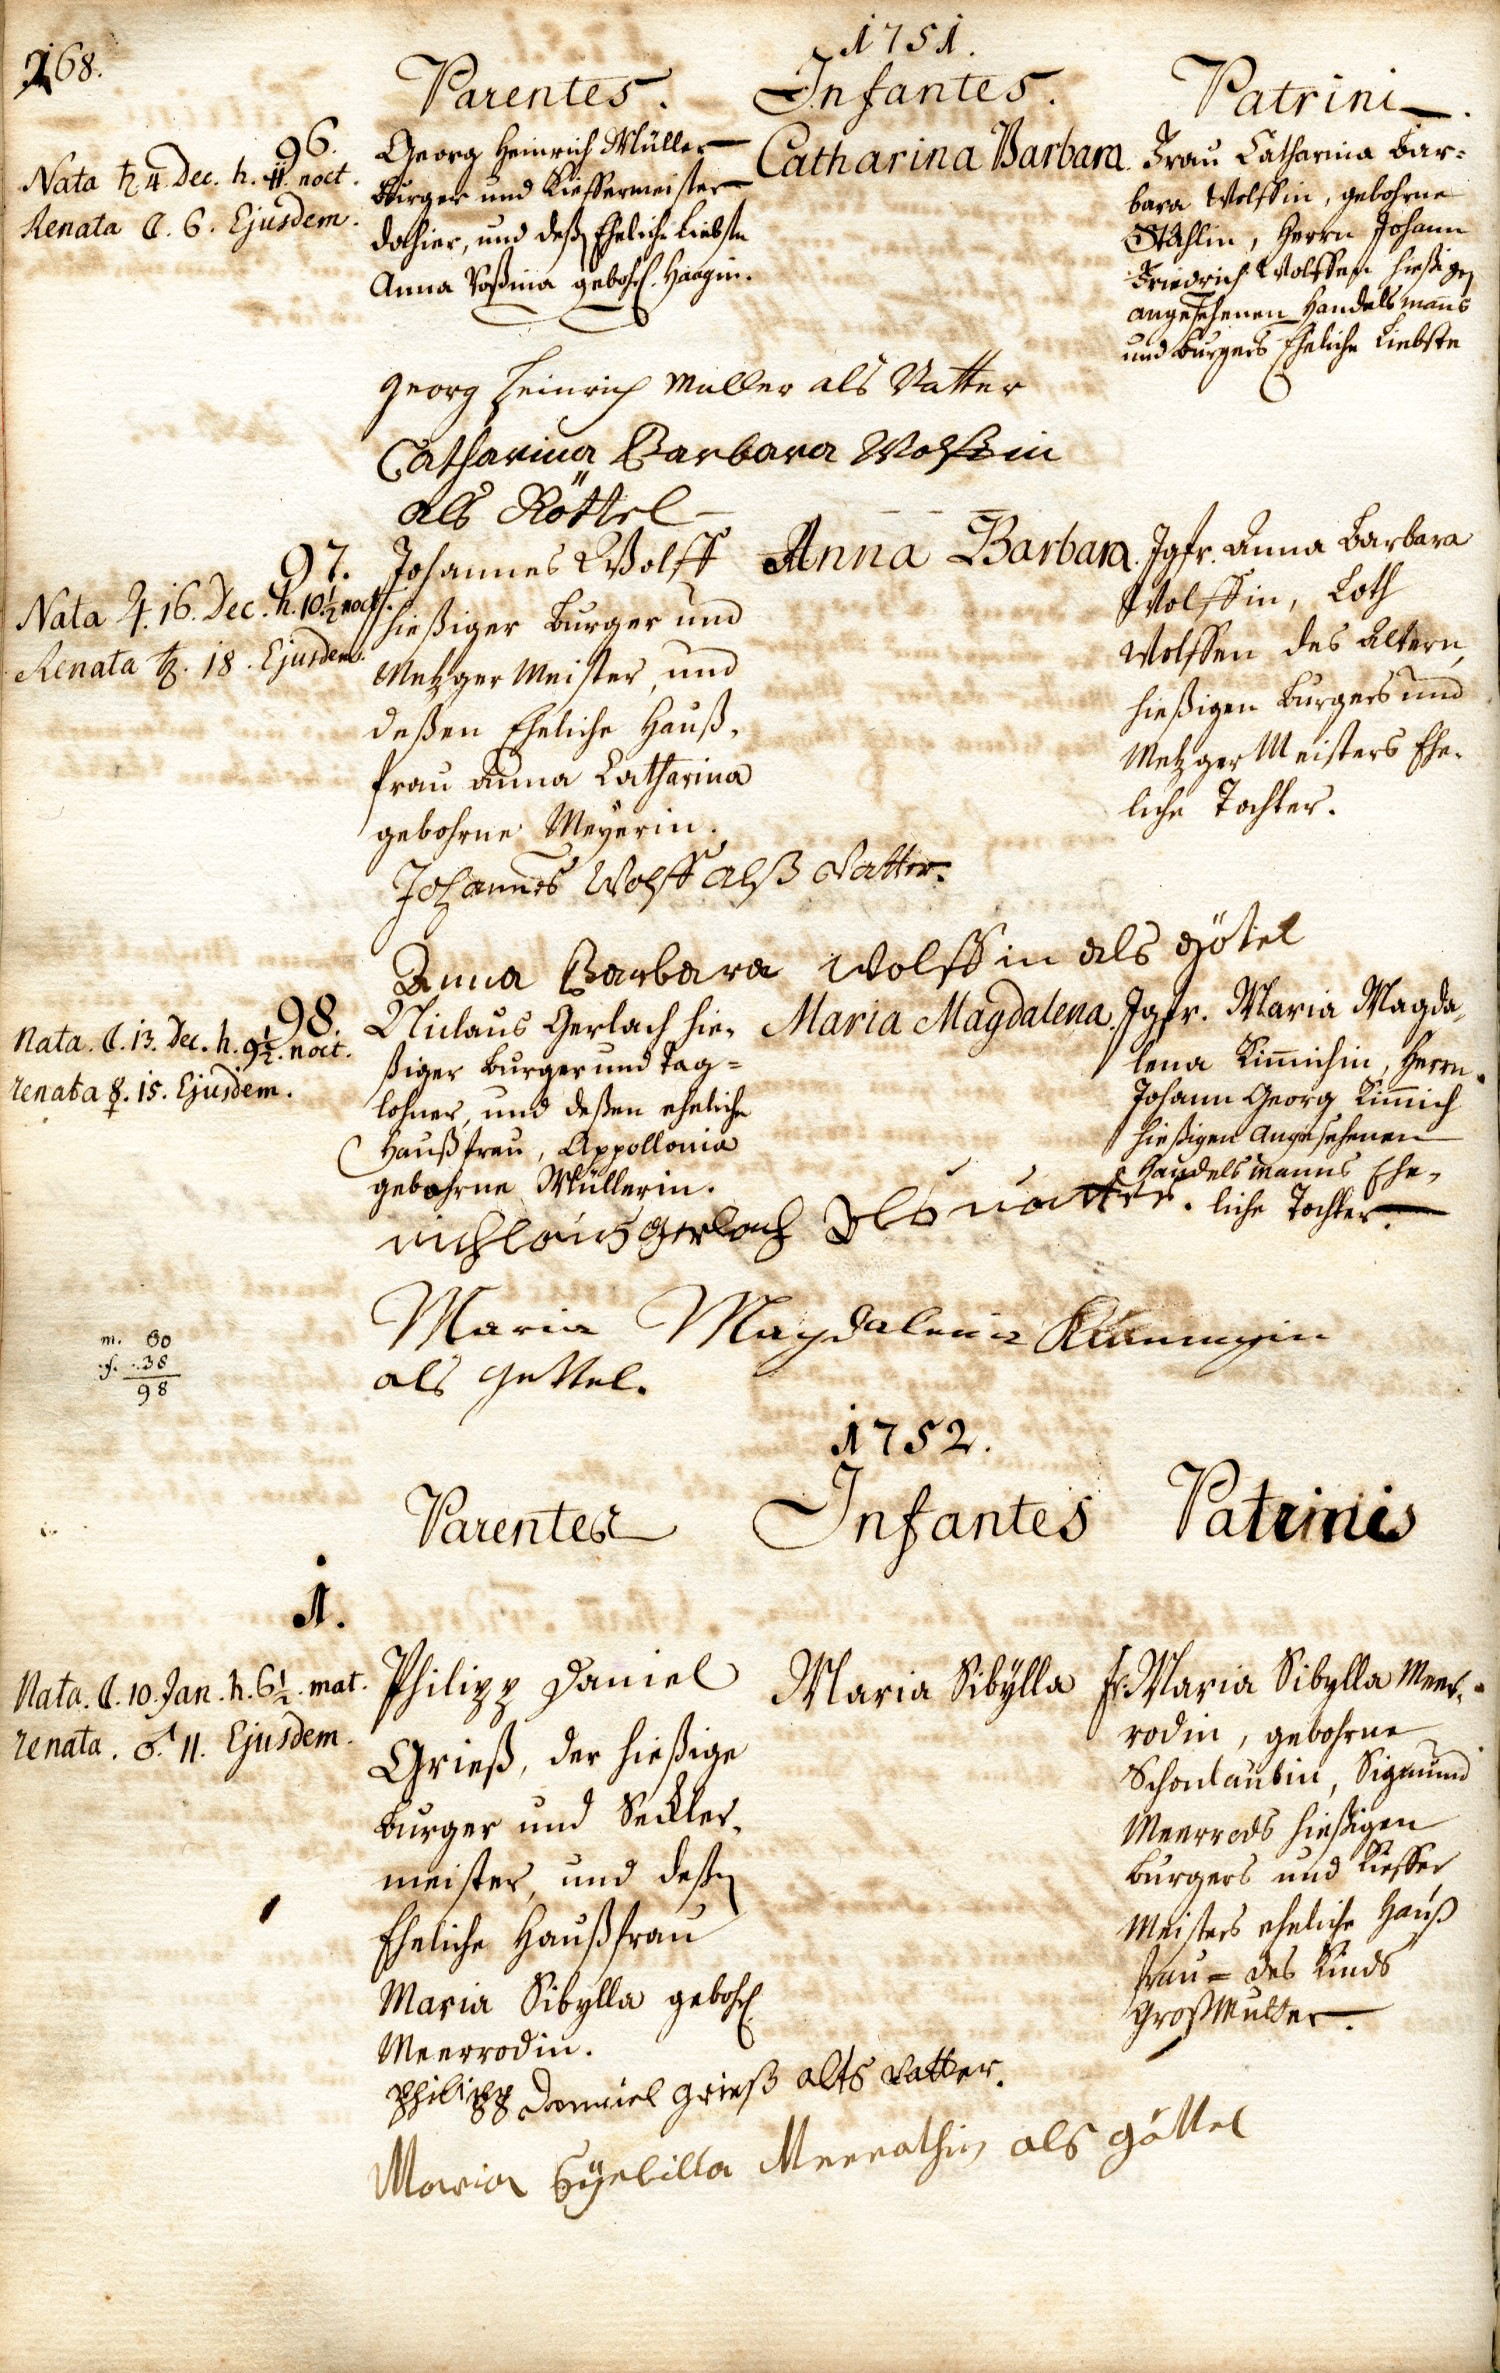 168.
1751.
Parentes. Infantes. Patrini.
96.
Nata ♄ 4. Dec. h. 11. noct.
Renata ☾. 6. Ejusdem.
Georg Heinrich Müller
Burger und Kieffermeister
dahier, und deßen Eheliche Liebste
Anna Roßina gebohr. Haagin.
Catharina Barbara.
Frau Catharina Bar=
bara Wolffin, gebohrne
Stählin, Herrn Johann
Friedrich Wolffen hießigen
angesehenen Handelsmanns
und burgers Eheliche Liebste
georg Heinrich Muller als Vatter
Catharina Barbara Wolffin
als Köttel
97.
Nata ♃. 16. Dec. h. 10½ noct.
Renata ♄. 18. Ejusdem.
Johannes Wolff
hießiger Burger und
Metzger Meister, und
deßen Eheliche Hauß-
frau Anna Catharina
gebohrne Meÿerin.
Anna Barbara.
Jgfr. Anna Barbara
Wolffin, Loth
Wolffen des Altern,
hießigen Burgers und
Metzger Meisters Ehe-
liche Tochter.
Johannes Wolff alß Vatter.
Anna Barbara Wolffin als götel
98.
Nata. ☾. 13. Dec. h. 9½. noct.
renata ☿. 15. Ejusdem.
Niclaus Gerlach hie-
ßiger Burger und Tag=
lohner, und deßen eheliche
Haußfrau, Appollonia
gebohrne Müllerin.
Maria Magdalena.
Jgfr. Maria Magda-
lena Kim̄ichin, Herrn
Johann Georg Kim̄ich
hießigen angesehenen
Handelsmanns Ehe-
liche Tochter.
nichlaus gerlach als vatter.
Maria Magdalena
als gettel.
m. 60
f. 38
98
1752.
Parentes Infantes Patrinis
1.
Nata. ☾. 10. Jan. h. 6½. mat.
renata. ♂. 11. Ejusdem.
Philipp Daniel
Grieß, der hießige
burger und Seckler-
meister, und deßen
Eheliche Haußfrau
Maria Sibylla gebohr.
Meerrodin.
Maria Sibÿlla
fr. Maria Sibylla Meer-
rodin, gebohrne
Schonlaubin, Sigmund
Meerrods hießigen
burgers und Kieffer
Meisters eheliche Hauß
frau = des Kinds
GroßMutter.
Philipp Daniel grieß alts Vatter.
Maria Syebilla Meerathin als göttel